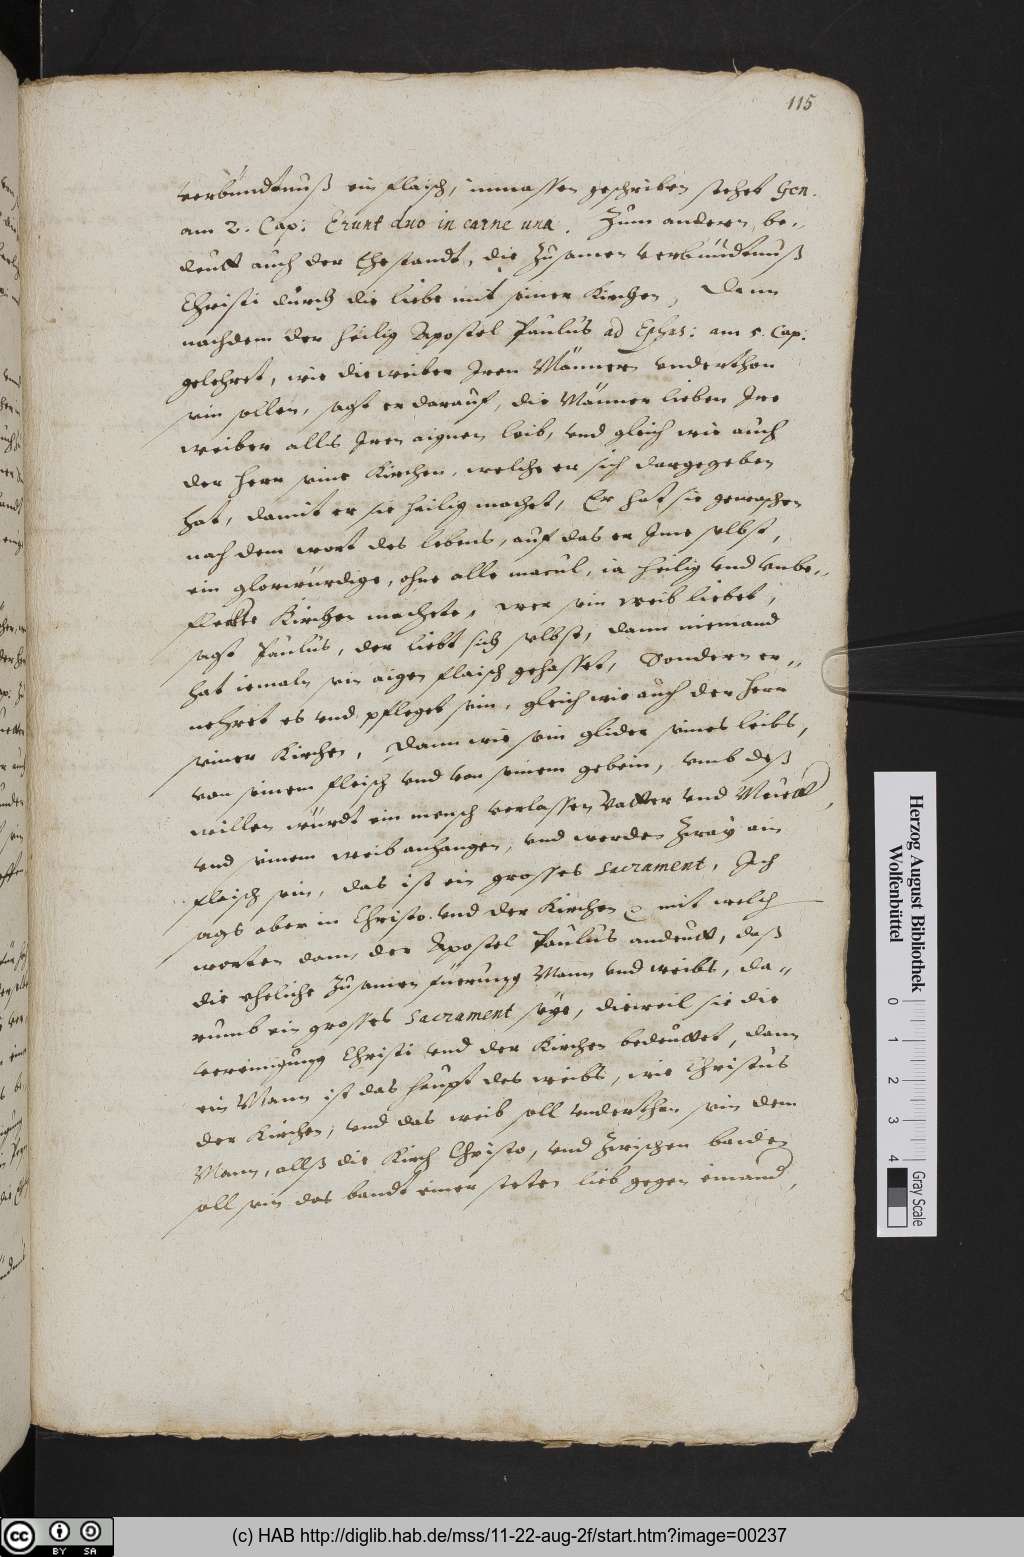 115
verbündtnuß ein flaisch, inmassen geschriben stehet Gen.
am 2. Cap: Erunt duo in carne una. Zum anderen, be„
deutt auch der Ehestandt, die Zusamen verbündtnuß
Christi durch die liebe mit seiner Kirchen, Dann
nachdem der heilig Apostel Paulus ad Ephes: am 5. Cap:
gelehret, wie die weiber Iren Männern underthan
sein sollen, sagt er darauf, die Männer lieben Ire
weiber alls Iren aignen leib, und gleich wie auch
der Herr seine Kirchen, welche er sich dargegeben
hat, damit er sie heilig machet, Er hat sie gewaschen
nach dem wort des lebens, auf das er Ime selbst,
ein glorwürdige, ohne alle macul, ia heilig und unbe„
fleckte Kirchen machete, wer sein weib liebet,
sagt Paulus, der liebt sich selbst, dann niemand
hat iemaln sein aigen flaisch gehasset, Sondern er„
nehret es und pfleget sein, gleich wie auch der Herr
seiner Kirchen, Dann wir sein glider seines leibs,
von seinem fleisch und von seinem gebein, umb deß
willen würdt ein mensch verlassen Vatter und Muett,
und seinem weib anhangen, und werden Zway ain
flaisch sein, das ist ein grosses Sacrament, Ich
sags aber in Christo und der Kirchen mit welch
worten dann der Apostel Paulus andeutt, daß
die eheliche Zusamen fuerung Mann und weibs, da„
rumb ein grosses Sacrament seye, dieweil sie die
vereinigung Christi und der Kirchen bedeuttet, dann
ein Mann ist das haupt des weibs, wie Christus
der Kirchen, und das weib soll underthan sein dem
Mann, allß die Kirch Christo, und Zwischen baiden
soll sein das bandt einer steten lieb gegen einand,
Herzog August Bibliothek
Wolfenbüttel
0 1 2 3 4
Gray Scale
CC BY SA
(c) HAB http://diglib.hab.de/mss/11-22-aug-2f/start.htm?image=00237